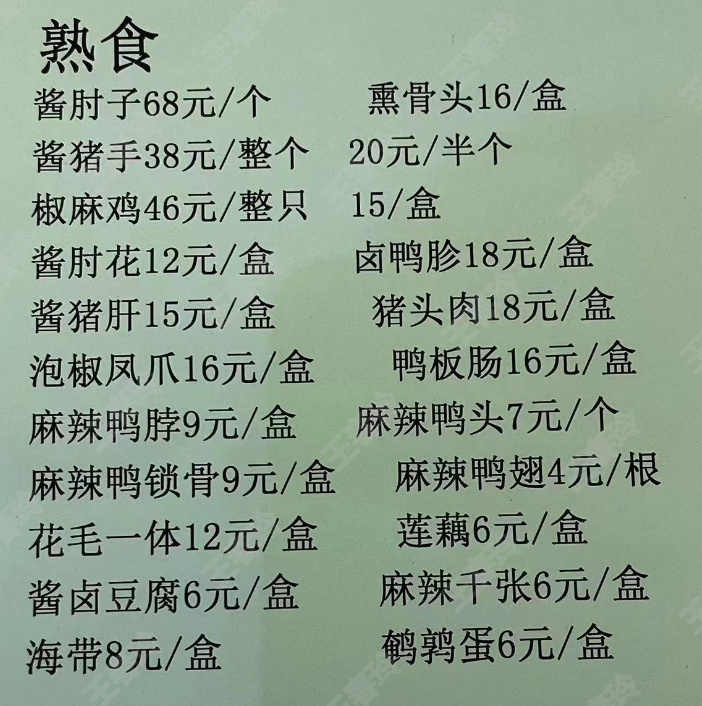 熟食
酱肘子68元/个 熏骨头16/盒
酱猪手38元/整个 20元/半个
椒麻鸡46元/整只 15/盒
酱肘花12元/盒 卤鸭胗18元/盒
酱猪肝15元/盒 猪头肉18元/盒
泡椒凤爪16元/盒 鸭板肠16元/盒
麻辣鸭脖9元/盒 麻辣鸭头7元/个
麻辣鸭锁骨9元/盒 麻辣鸭翅4元/根
花毛一体12元/盒 莲藕6元/盒
酱卤豆腐6元/盒 麻辣千张6元/盒
海带8元/盒 鹌鹑蛋6元/盒